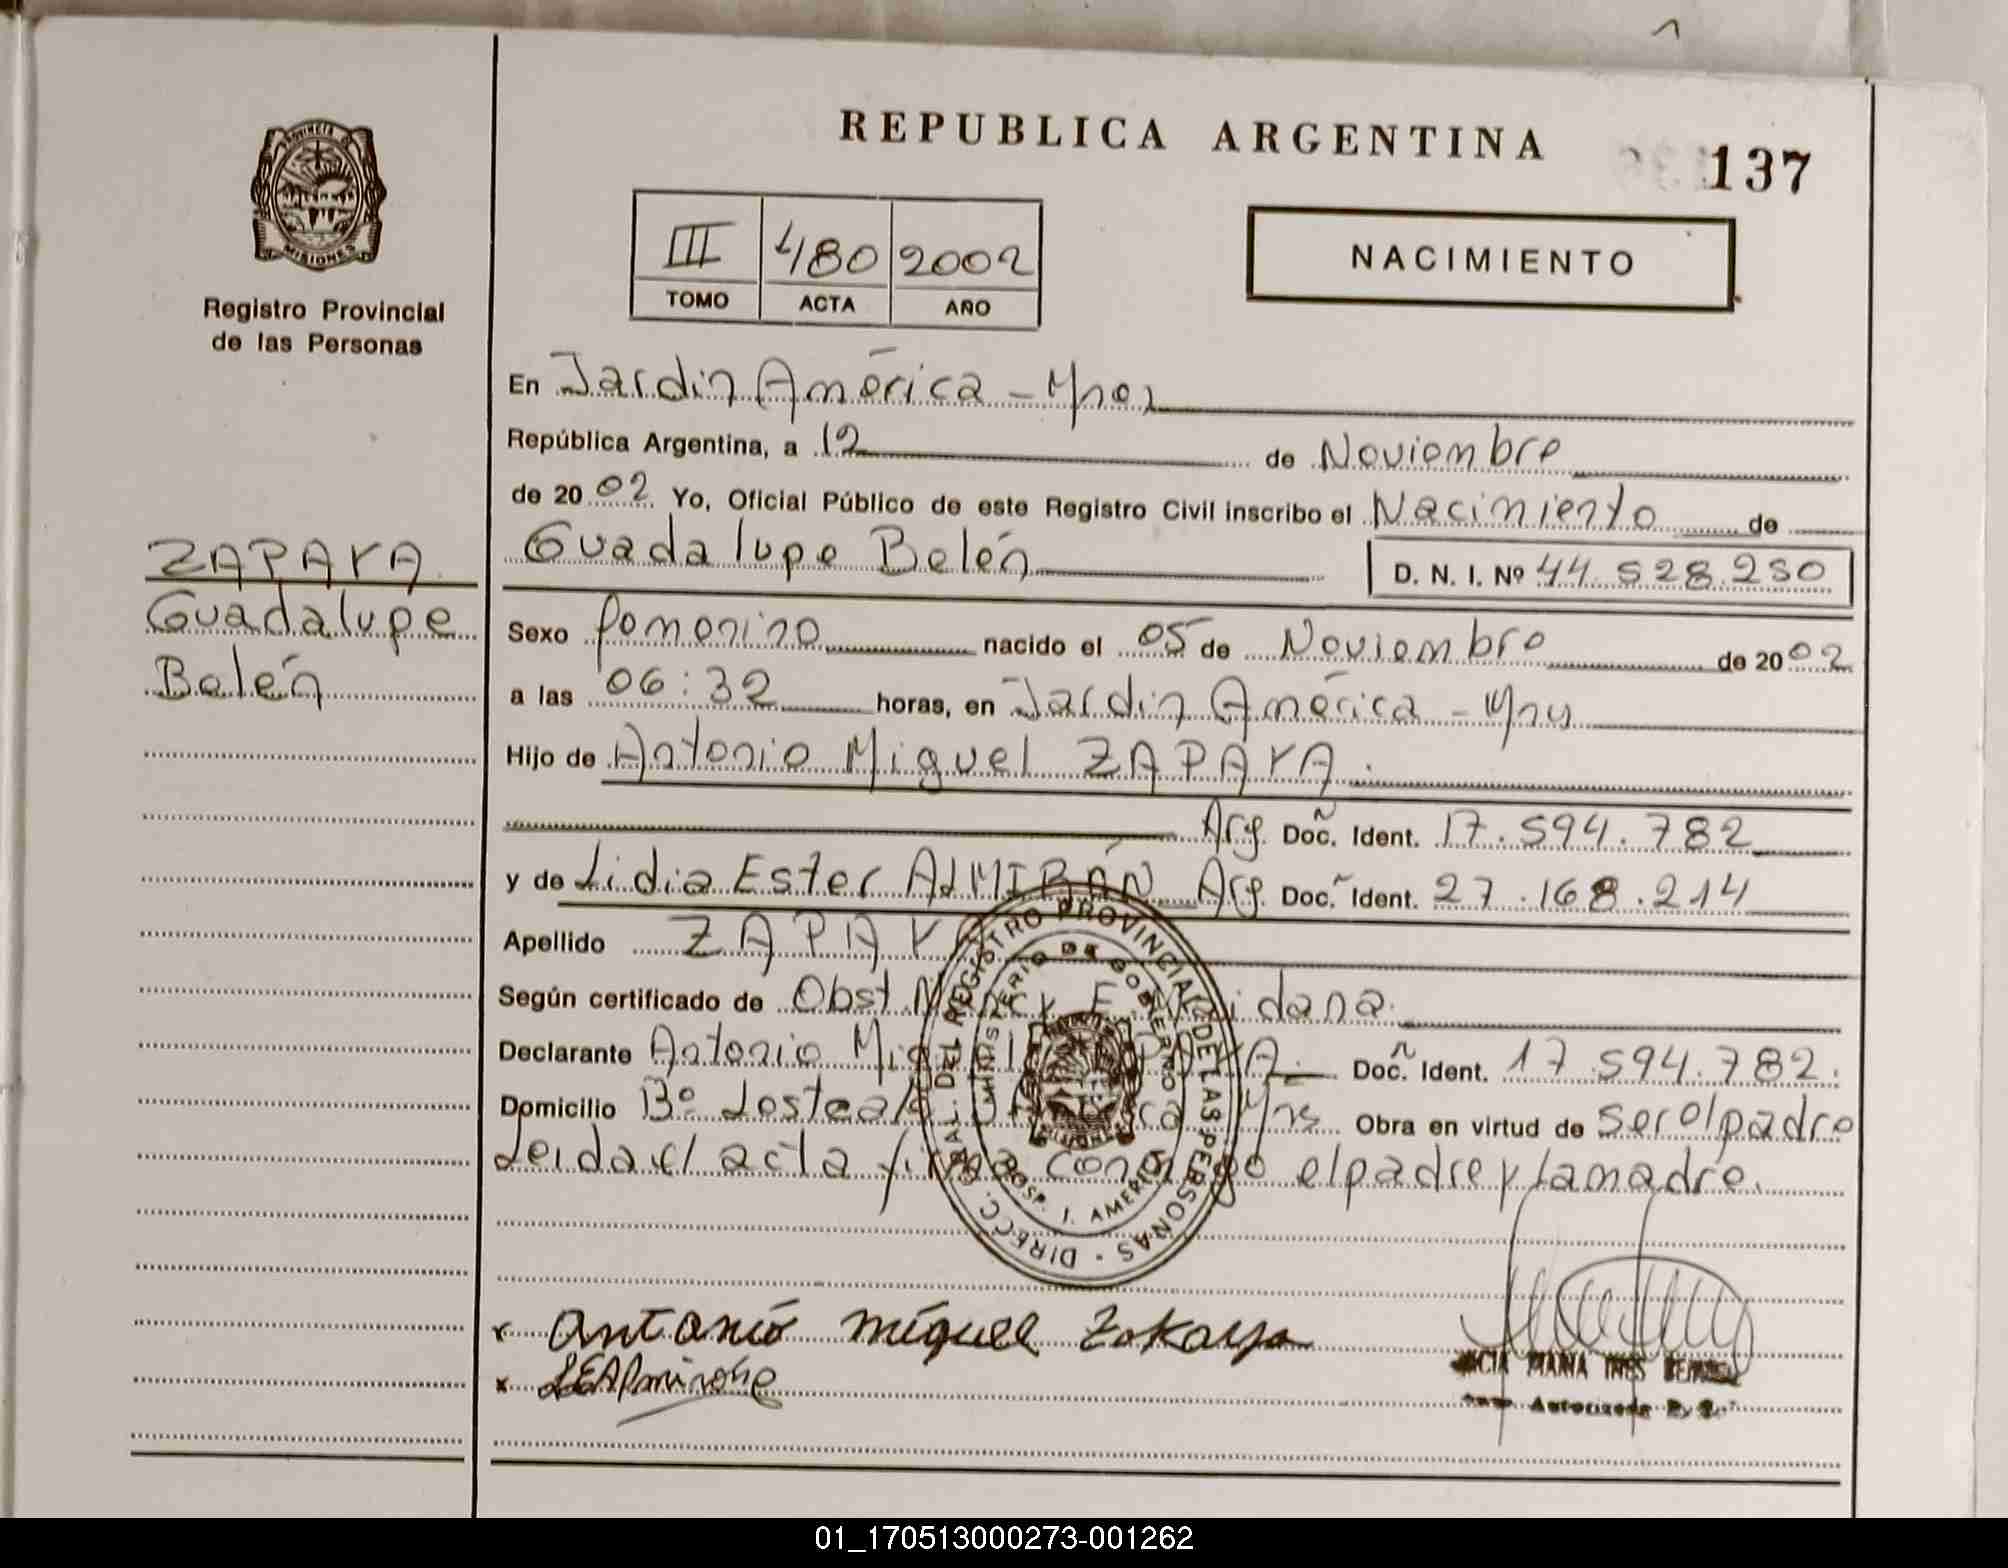 REPUBLICA ARGENTINA
137
PROVINCIA D
MISIONES
Registro Provincial
de las Personas
III 480 2002
TOMO ACTA AÑO
NACIMIENTO
En Jardin América - Mnes
República Argentina, a 12 de Noviembre
de 20 02 Yo, Oficial Público de este Registro Civil inscribo el Nacimiento de
Guadalupe Belén D. N. I. Nº 44.528.250
ZAPAYA
Guadalupe
Belén
Sexo Femenino nacido el 05 de Noviembre de 20 02
a las 06:32 horas, en Jardin América - Mns
Hijo de Antonio Miguel ZAPAYA.
Arg. Doc. Ident. 17.594.782
y de Lidia Ester ALMIRÓN Arg. Doc. Ident. 27.168.214
Apellido ZAPAYA
Según certificado de Obst. Nancy E. idana.
Declarante Antonio Miguel ZAPAYA. Doc. Ident. 17.594.782.
Domicilio Bº Losteales Mns Obra en virtud de ser el padre
Leida el acta firma conmigo el padre y la madre.
DIRECC. GRAL. DEL REGISTRO PROVINCIAL DE LAS PERSONAS
MINISTERIO DE GOBIERNO
HOSP. J. AMERICA
x Antonio Miguel Zakaya
x
MARIA INES
Autorizada
01_170513000273-001262